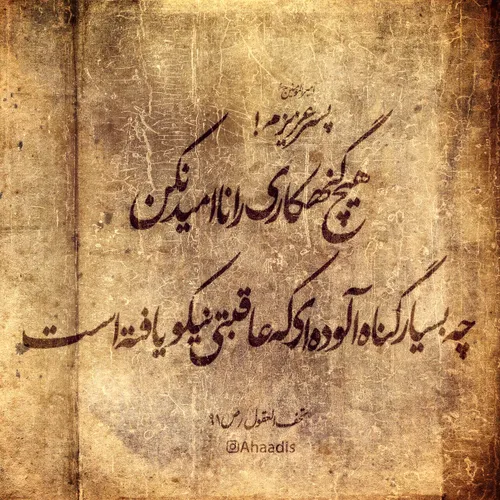 پسر عزیزم!
هیچ گنهکاری را ناامید نکن
چه بسیار گناه آلوده‌ای که عاقبتی نیکو یافته است
تحف العقول / ص ۹۱
@Ahaadis